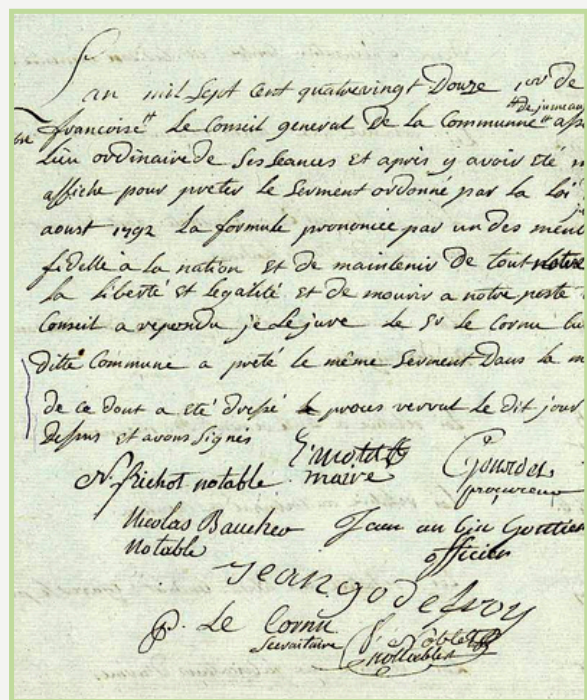 L'an mil Sept Cent quatrevingt Douze 1er de
francoise le Conseil general de la Communne de jumeau
Lieu ordinaire de Ses Seances et après y avoir eté
affiche pour preter le Serment ordonné par la Loi
aoust 1792 La formule prononcee par un des
fidelle à la nation et de maintenir de tout notre
la liberté et legalité et de mourir a notre poste
Conseil a repondu je Le jure Le Sr Le Cornu
ditte Commune a preté le même Serment Dans la
de ce dont a eté dressé le proces verval Le dit jour
dessus et avons signes
N. frichot notable maire procureur
Nicolas Baucher Jean
notable officier
Jean godefroy
P. Le Cornu
Secretaire